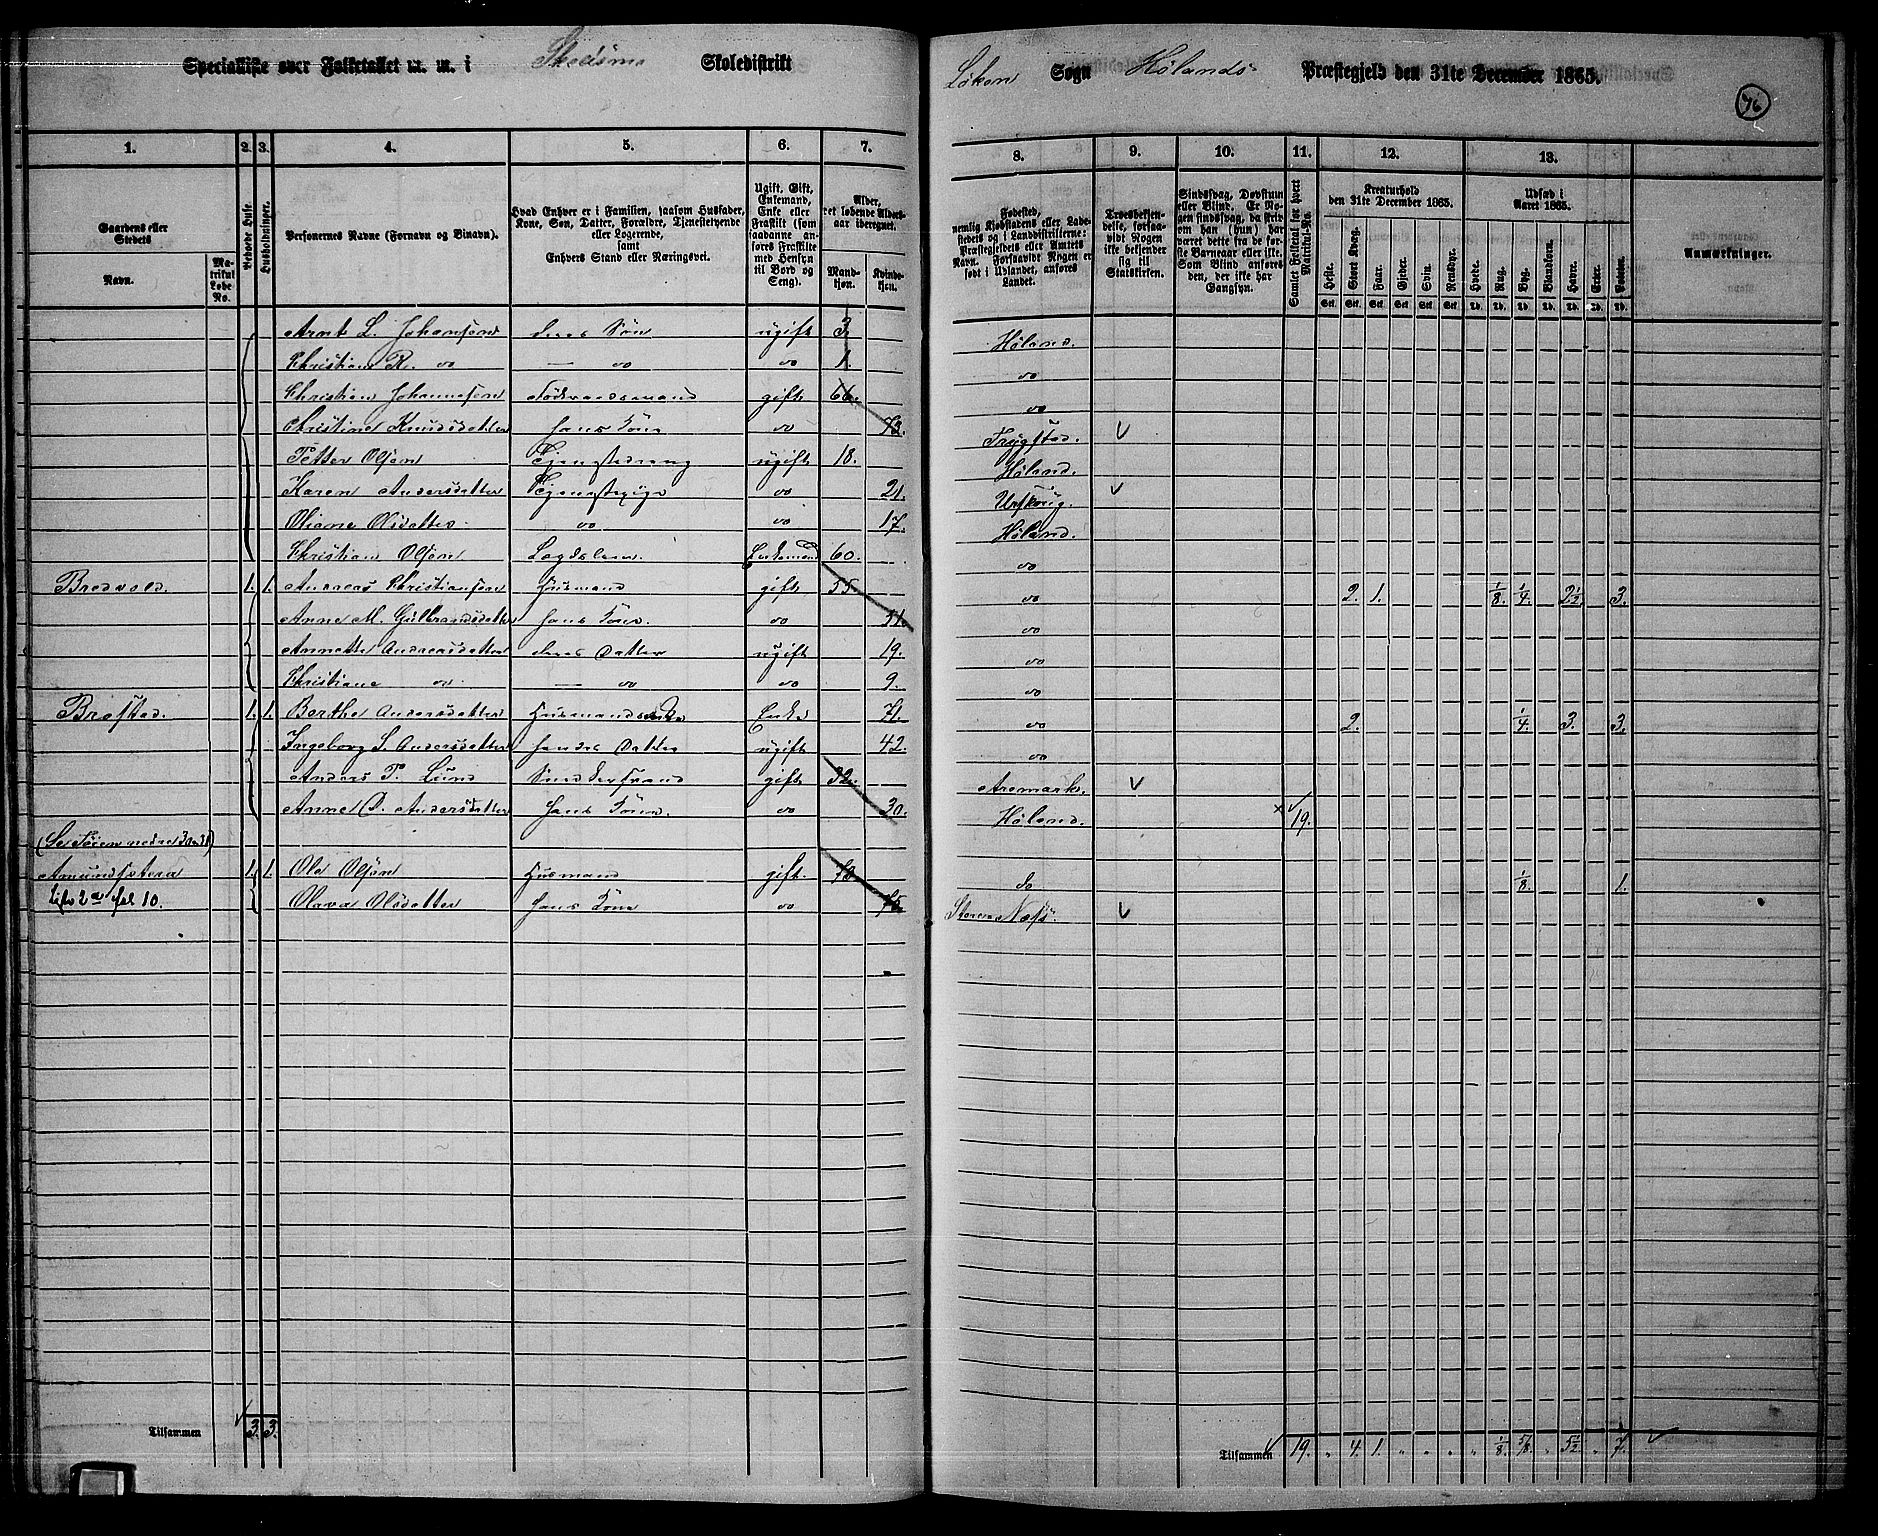 Specialliste over Folketallet m. m. i Skedsmo Skoledistrikt Löken Sogn Hölands Præstegjeld den 31te December 1865.
76
1. 2. 3. 4. 5. 6. 7. 8. 9. 10. 11. 12. 13.
Gaardens eller Stedets
Navn.
Matrikul Løbe No.
Beboede Huse.
Husholdninger.
Personernes Navne (Fornavn og Binavn).
Hvad Enhver er i Familien, saasom Husfader, Kone, Søn, Datter, Forældre, Tjenestetyende eller Logerende, samt Enhvers Stand eller Næringsvei.
Ugift, Gift, Enkemand, Enke eller Fraskilt (som saadanne anføres Fraskilte med Hensyn til Bord og Seng).
Alder, det løbende Aldersaar iberegnet.
Mandkjøn.
Kvindekjøn.
Fødested, nemlig Kjøbstadens eller Ladestedets og i Landdistrikterne: Præstegjeldets eller Amtets Navn. Forsaavidt Nogen er født i Udlandet, anføres Landet.
Troesbekjendelse, forsaavidt Nogen ikke bekjender sig til Statskirken.
Sindssvag, Døvstum eller Blind. Er Nogen sindssvag, da skriv om han (hun) har været dette fra de første Barneaar eller ikke. Som Blind anføres den, der ikke har Gangsyn.
Samlet Folketal for hvert Matrikul-No.
Kreaturhold den 31te December 1865.
Heste. Stort Kvæg. Faar. Gjeder. Svin. Rensdyr.
Udsæd i Aaret 1865.
Hvede. Rug. Byg. Blandkorn. Havre. Erter. Poteter.
Anmærkninger.
Arnt L. Johansen deres Søn ugift 3. Höland.
Christian R. do — do do 1. do
Christian Johannesen Föderaadsmand gift 66. do
Christine Knudsdatter hans Kone do 73. Trygstad.
Petter Olsen Tjenestedreng ugift 18. Höland.
Karen Andersdatter Tjenestepige do 21. Urskoug.
Oliane Olsdatter. do do 17. Höland.
Christian Olsen Lægdslem. Enkemand 60. do
Bredvold. 1. 1. Andreas Christiansen Husmand gift 55. do 2. 1. 1/8. 1/4. 2 1/2 3.
Anne M. Gulbrandsdatter hans Kone. do 51. do
Annette Andreasdatter deres Datter ugift 19. do
Christiane do — do do 9. do
Brostad. 1. 1. Berthe Andersdatter Husmandsenke Enke 71. do 2. 1/4. 3. 3.
Ingeborg S. Andersdatter hendes Datter ugift 42. do
Anders P. Lund gift 32. Aremark.
Anne O. Andersdatter hans Kone. do 30. Höland. 19.
Amundsætera 1. 1. Ole Olsen Husmand gift. 70 do 1/8. 1.
fol 10. Olava Olsdatter hans Kone do 75. Store Næs.
Tilsammen 3. 3.
Tilsammen 19. " 4. 1. " " " " 1/8. 5/8. " 5 1/2 " 7.